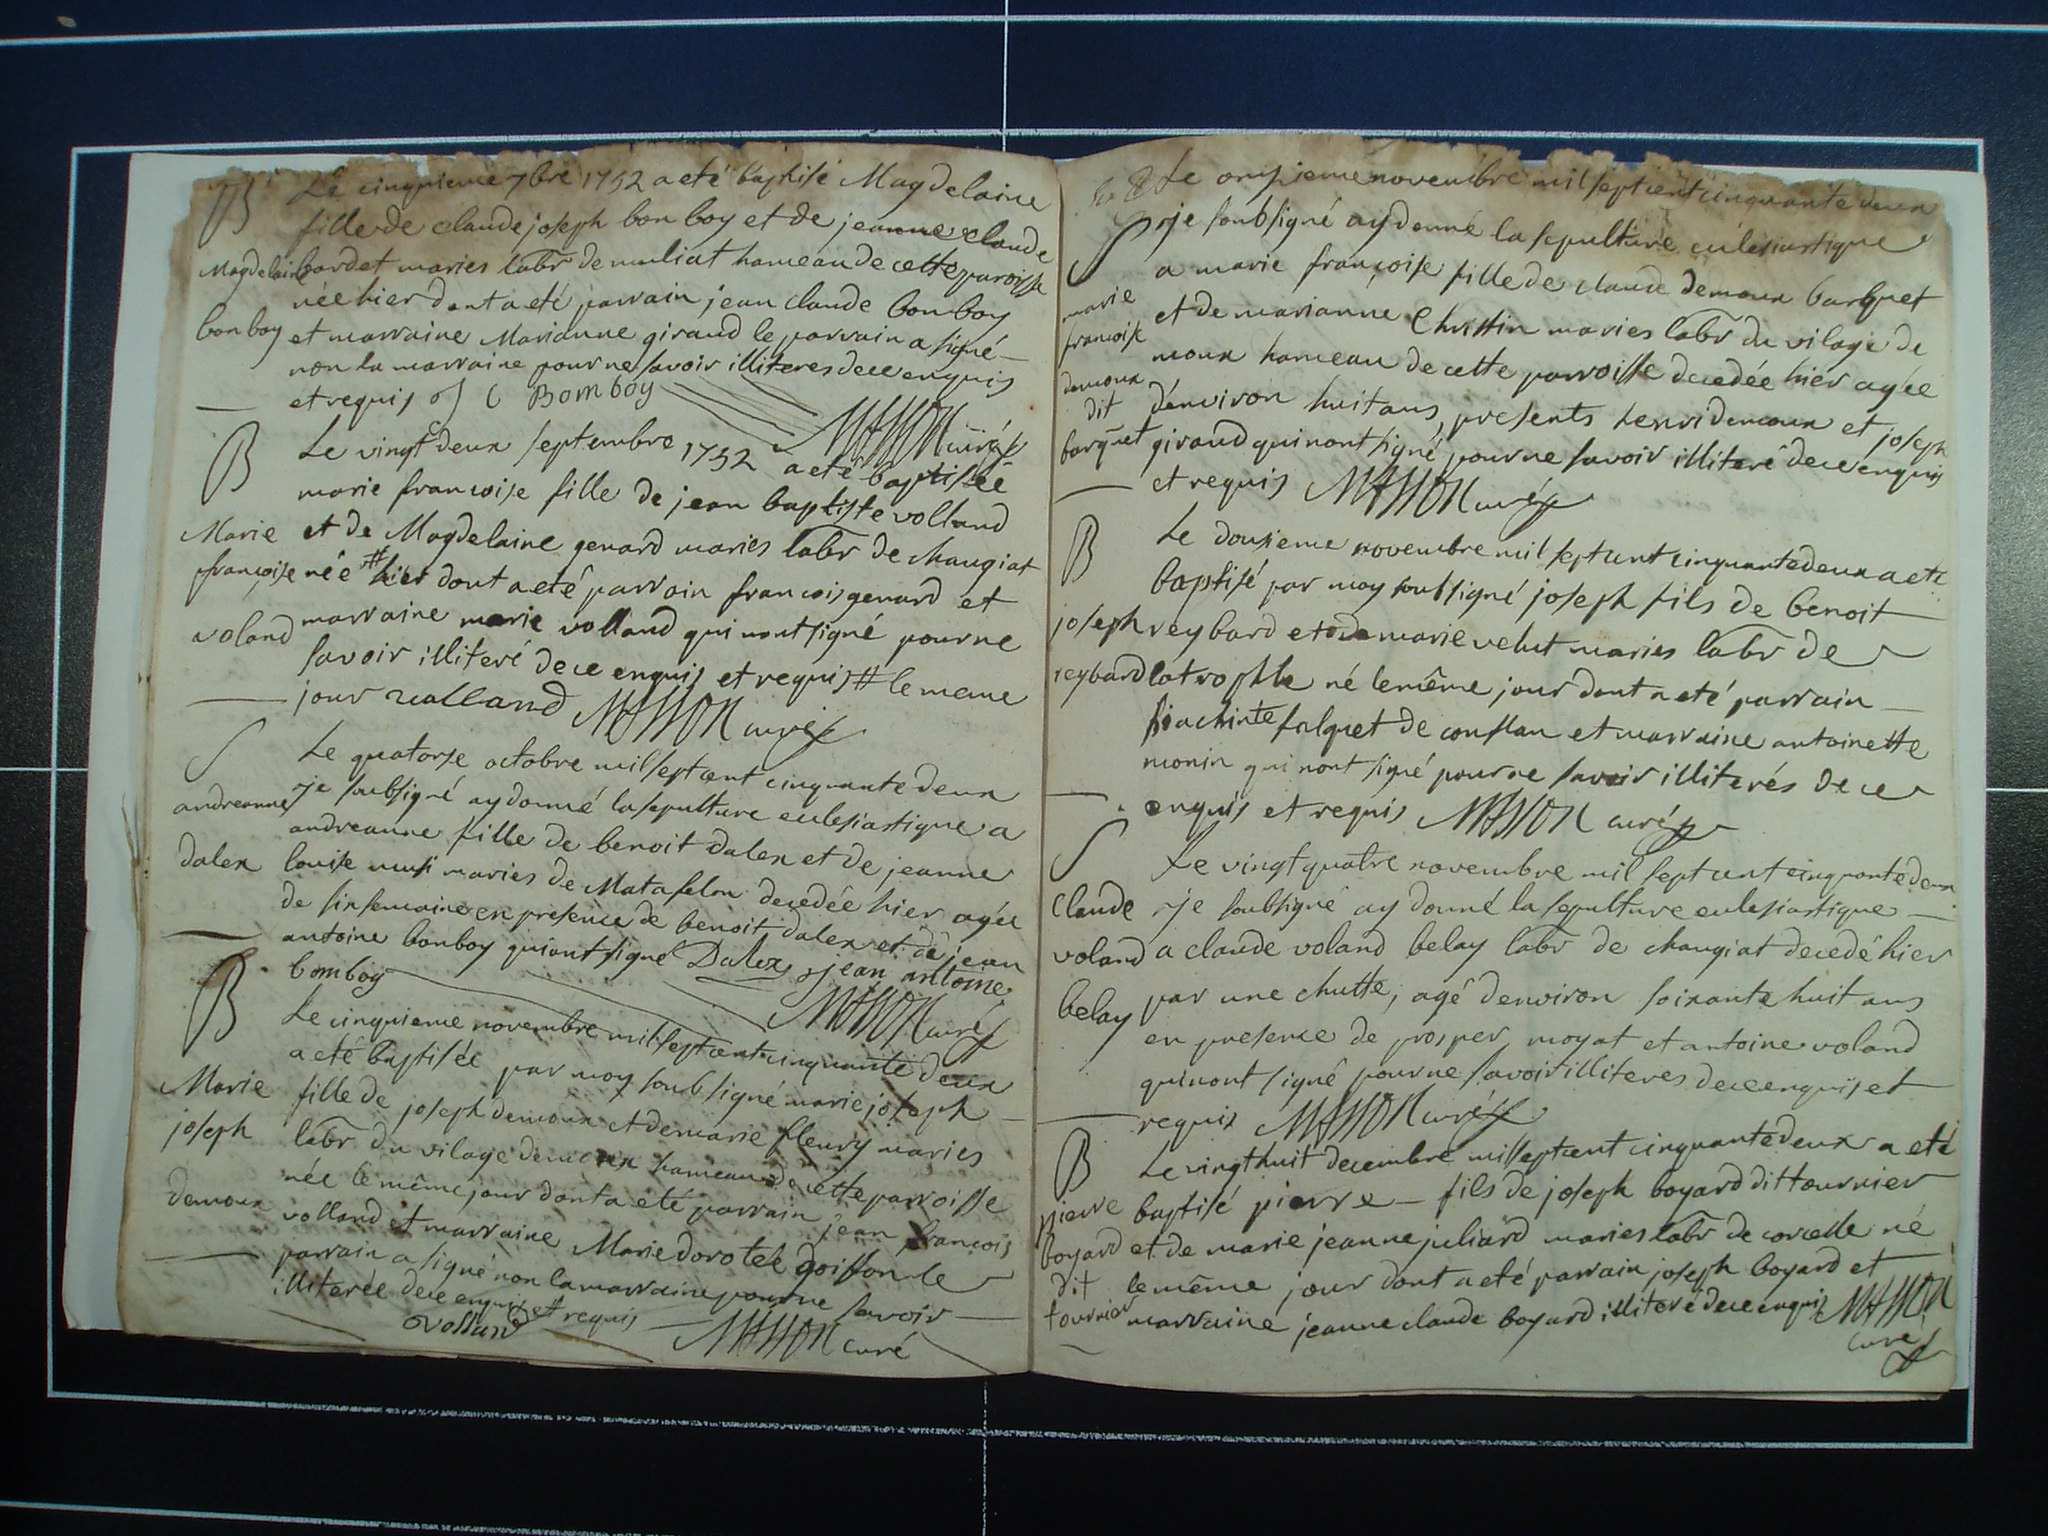 B Le cinquieme 7bre 1752 a eté baptisé Magdelaine
fille de claude joseph bon boy et de jeanne claude
Magdelaine bardet maries labr de muliat hameau de cette paroisse
née hier dont a eté parrain jean claude bonboy
bonboy et marraine Marianne giraud le parrain a signé
non la marraine pour ne savoir illiteres de ce enquis
et requis J C Bomboy
MASSON curé
B Le vingt deux septembre 1752 a eté baptisée
marie francoise fille de jean baptiste volland
Marie et de Magdelaine genard maries labr de changiat
françoise née # hier dont a eté parrain francois genard et
voland marraine marie volland qui nont signé pour ne
savoir illiteré de ce enquis et requis # le meme
jour valland MASSON curé
S Le quatorse octobre mil sept cent cinquante deux
andreanne je soubsigné ay donné la sepulture eclesiastique a
andreanne fille de benoit dalex et de jeanne
dalex louise musi maries de Matafelon decedée hier agée
de six semaine en presence de benoit dalex et de jean
antoine bonboy qui ont signé Dalex jean antoine
bomboy MASSON curé
B Le cinquieme novembre mil sept cent cinquante deux
a eté baptisée par moy soubsigné marie joseph
Marie fille de joseph demoux et de marie fleury maries
joseph labr du vilage demoux hameau de cette parroisse
née le même jour dont a eté parrain jean francois
demoux volland et marraine Marie dorotek goiffon le
parrain a signé non la marraine pour ne savoir
illiterée de ce enquis et requis
volland MASSON curé
Le onsieme novembre mil sept cent cinquante deux
S je soubsigné ay donné la sepulture eclesiastique
a marie françoise fille de claude demoux barquet
marie et de marianne Christin maries labr du vilage de
francoise moux hameau de cette parroisse decedée hier agée
demoux dit d'environ huit ans, presents henri demoux et joseph
barquet giraud qui nont signé pour ne savoir illiteré de ce enquis
et requis MASSON curé
B Le dousieme novembre mil sept cent cinquante deux a eté
baptisé par moy soubsigné joseph fils de benoit
joseph reybard et de marie velut maries labr de
reybard né le même jour dont a eté parrain
hiachinte falquet de conflan et marraine antoinette
monin qui nont signé pour ne savoir illiterés de ce
enquis et requis MASSON curé
S Le vingt quatre novembre mil sept cent cinquante deux
Claude je soubsigné ay donné la sepulture eclesiastique
voland a claude voland belay labr de changiat decedé hier
belay par une chutte, agé denviron soixante huit ans
en presence de prosper moyat et antoine voland
qui nont signé pour ne savoir illiteres de ce enquis et
requis MASSON curé
B Le vingt huit decembre mil sept cent cinquante deux a eté
pierre baptisé pierre fils de joseph boyard dit tournier
boyard et de marie jeanne juliard maries labr de corcelle né
dit le même jour dont a eté parrain joseph boyard et
tournier marraine jeanne claude boyard illiteré de ce enquis MASSON
curé